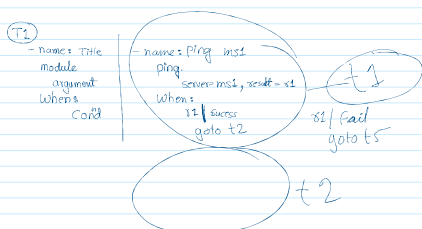 T1
- name: Title
module
argument
When:
Cond
- name: Ping ms1
ping
server=ms1, result=r1
When:
r1 | Sucess
goto t2
t1
r1 | Fail
goto t5
t2